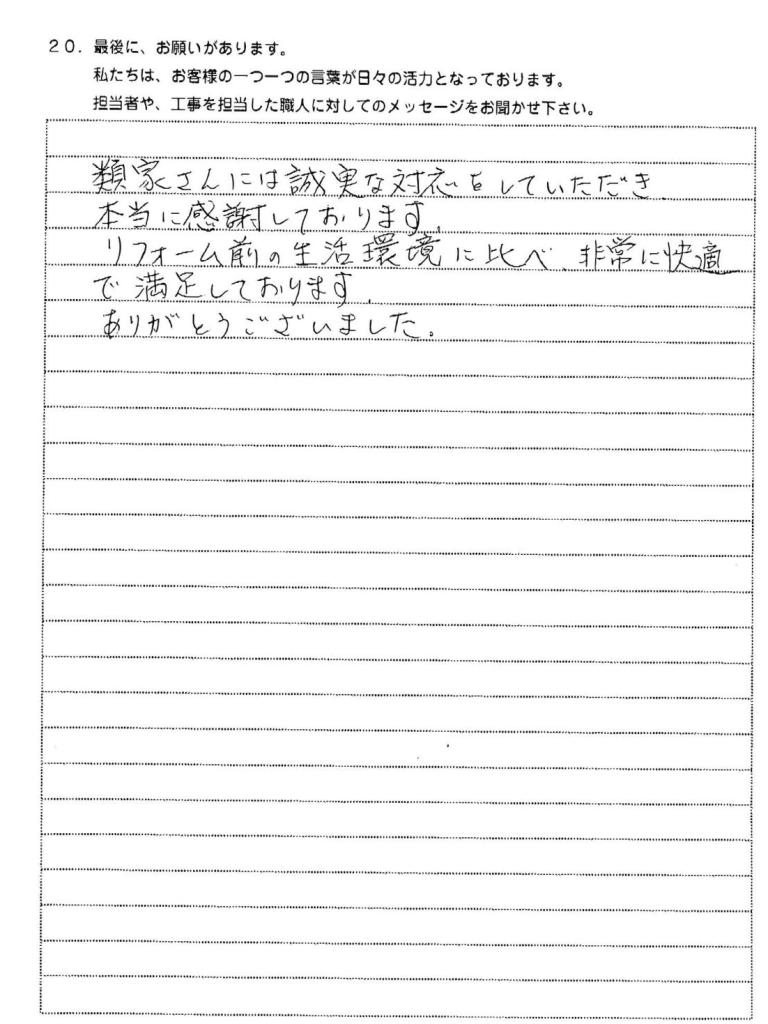 20. 最後に、お願いがあります。
私たちは、お客様の一つ一つの言葉が日々の活力となっております。
担当者や、工事を担当した職人に対してのメッセージをお聞かせ下さい。
類家さんには誠実な対応をしていただき、
本当に感謝しております。
リフォーム前の生活環境に比べ、非常に快適
で満足しております。
ありがとうございました。